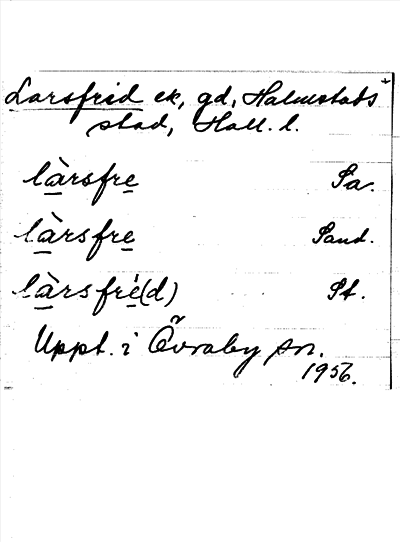 Larsfrid ek, gd, Halmstads
stad, Hall. l.
làrsfre Sa.
làrsfre Sand.
làrsfré(d) St.
Uppt. i Övraby sn.
1956.